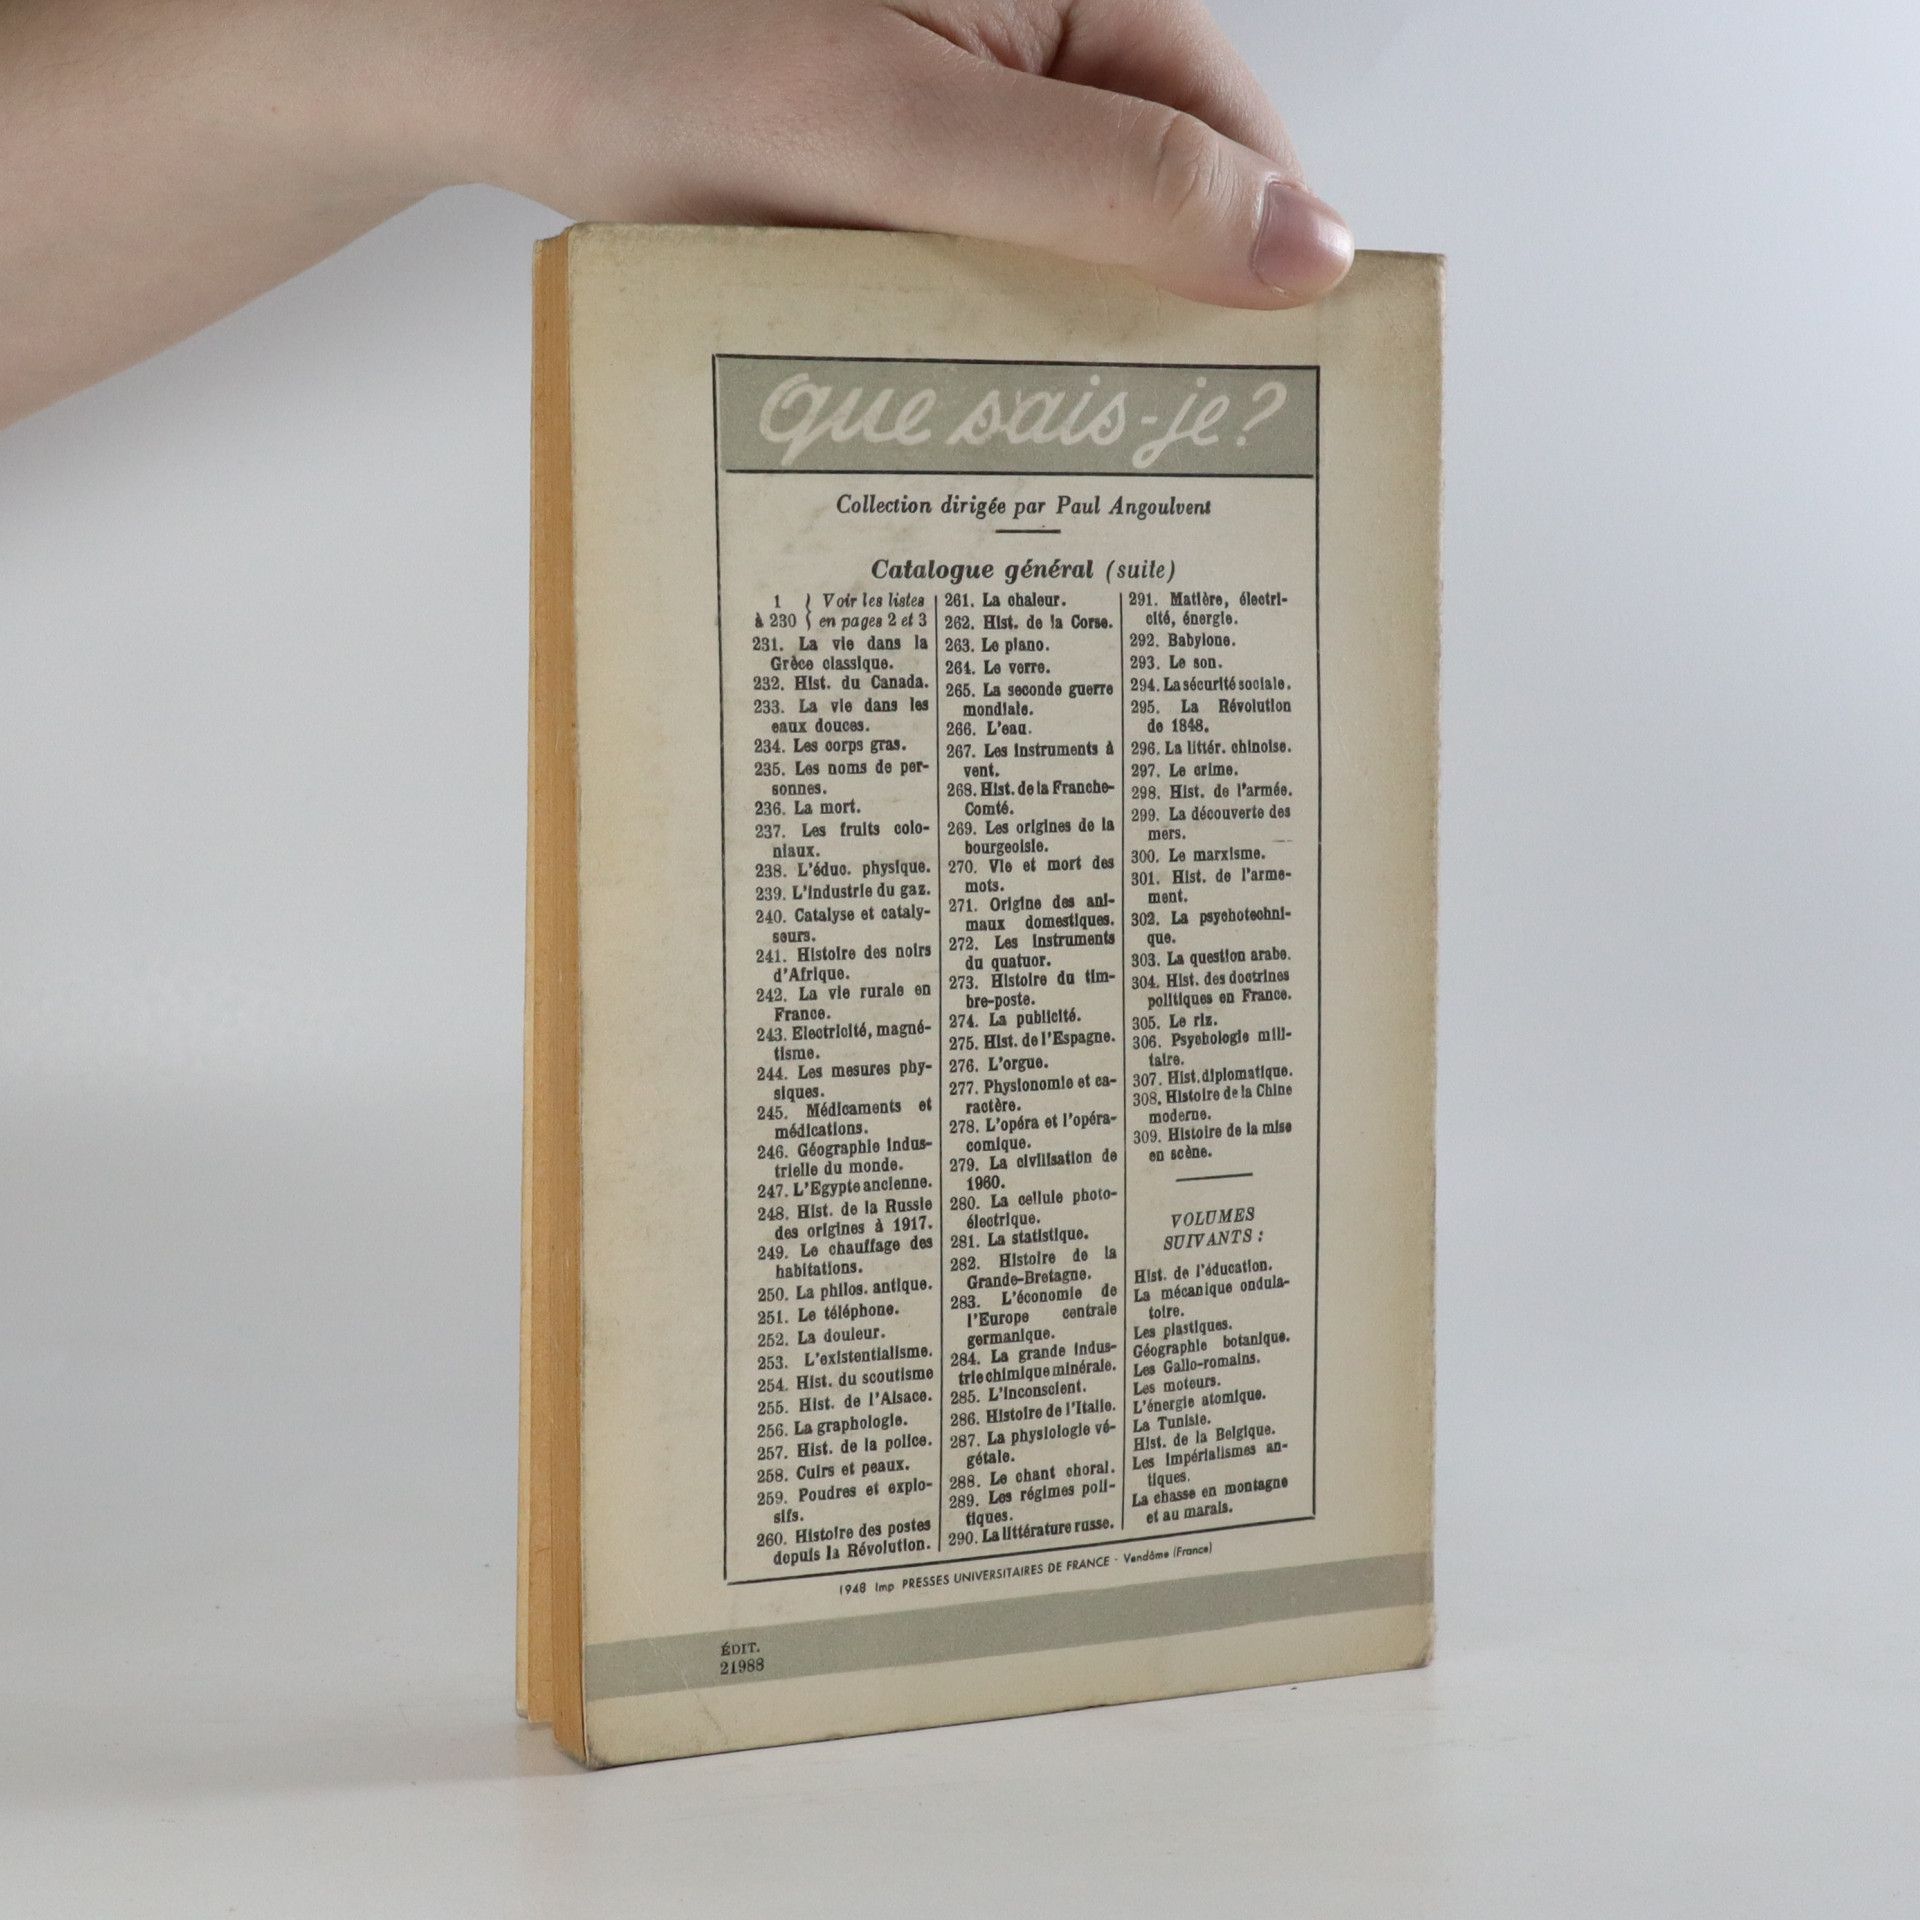 que sais-je?
Collection dirigée par Paul Angoulvent
Catalogue général (suite)
1 } Voir les listes
à 230 } en pages 2 et 3
231. La vie dans la
Grèce classique.
232. Hist. du Canada.
233. La vie dans les
eaux douces.
234. Les corps gras.
235. Les noms de per-
sonnes.
236. La mort.
237. Les fruits colo-
niaux.
238. L'éduc. physique.
239. L'industrie du gaz.
240. Catalyse et cataly-
seurs.
241. Histoire des noirs
d'Afrique.
242. La vie rurale en
France.
243. Electricité, magné-
tisme.
244. Les mesures phy-
siques.
245. Médicaments et
médications.
246. Géographie indus-
trielle du monde.
247. L'Egypte ancienne.
248. Hist. de la Russie
des origines à 1917.
249. Le chauffage des
habitations.
250. La philos. antique.
251. Le téléphone.
252. La douleur.
253. L'existentialisme.
254. Hist. du scoutisme
255. Hist. de l'Alsace.
256. La graphologie.
257. Hist. de la police.
258. Cuirs et peaux.
259. Poudres et explo-
sifs.
260. Histoire des postes
depuis la Révolution.
261. La chaleur.
262. Hist. de la Corse.
263. Le piano.
264. Le verre.
265. La seconde guerre
mondiale.
266. L'eau.
267. Les instruments à
vent.
268. Hist. de la Franche-
Comté.
269. Les origines de la
bourgeoisie.
270. Vie et mort des
mots.
271. Origine des ani-
maux domestiques.
272. Les instruments
du quatuor.
273. Histoire du tim-
bre-poste.
274. La publicité.
275. Hist. de l'Espagne.
276. L'orgue.
277. Physionomie et ca-
ractère.
278. L'opéra et l'opéra-
comique.
279. La civilisation de
1960.
280. La cellule photo-
électrique.
281. La statistique.
282. Histoire de la
Grande-Bretagne.
283. L'économie de
l'Europe centrale
germanique.
284. La grande indus-
trie chimique minérale.
285. L'inconscient.
286. Histoire de l'Italie.
287. La physiologie vé-
gétale.
288. Le chant choral.
289. Les régimes poli-
tiques.
290. La littérature russe.
291. Matière, électri-
cité, énergie.
292. Babylone.
293. Le son.
294. La sécurité sociale.
295. La Révolution
de 1848.
296. La littér. chinoise.
297. Le crime.
298. Hist. de l'armée.
299. La découverte des
mers.
300. Le marxisme.
301. Hist. de l'arme-
ment.
302. La psychotechni-
que.
303. La question arabe.
304. Hist. des doctrines
politiques en France.
305. Le riz.
306. Psychologie mili-
taire.
307. Hist. diplomatique.
308. Histoire de la Chine
moderne.
309. Histoire de la mise
en scène.
VOLUMES
SUIVANTS :
Hist. de l'éducation.
La mécanique ondula-
toire.
Les plastiques.
Géographie botanique.
Les Gallo-romains.
Les moteurs.
L'énergie atomique.
La Tunisie.
Hist. de la Belgique.
Les impérialismes an-
tiques.
La chasse en montagne
et au marais.
1948 Imp PRESSES UNIVERSITAIRES DE FRANCE - Vendôme (France)
ÉDIT.
21988